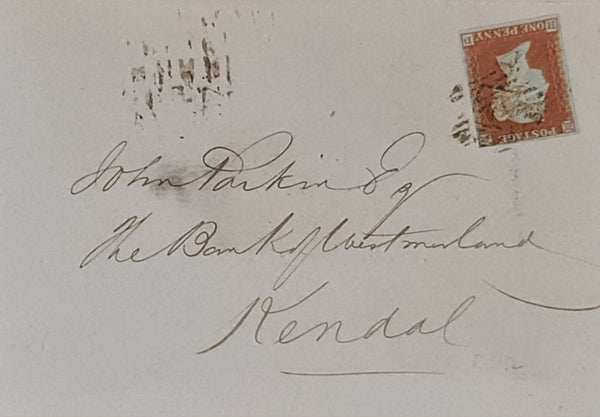 POSTAGE
ONE PENNY
John Parkin Esq
The Bank of Westmorland
Kendal